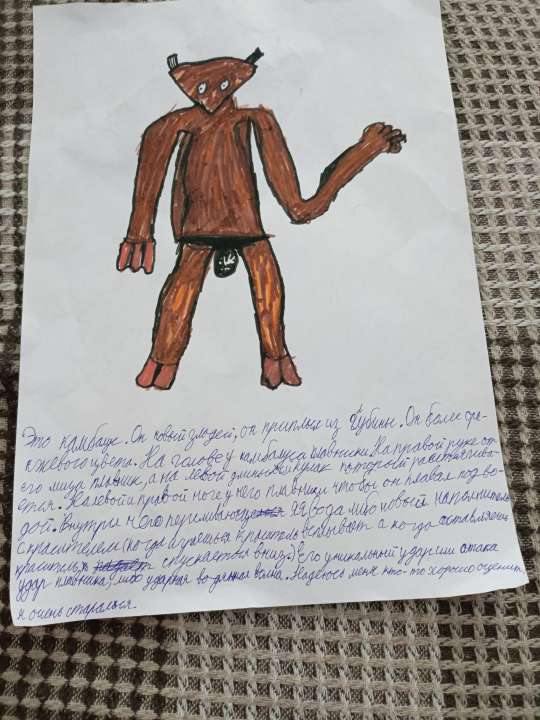 Это камбаус. Он новый злодей, он приплыл из Глубины. Он более оранжевого цвета. На голове у камбауса плавники. На правой руке от
его мизца плавник, а на левой длинный кулак который растягива-
ется. На левой и правой ноге у него плавники что бы он плавал под во-
дой. Внутри него переливающуеся вода либо новый наполнитель
с красителем (когда играешься краситель всплывает а когда оставляешь
краситель спускается вниз). Его уникальный удар или атака
удар плавника, либо ударная во-дянная волна. Надеюсь меня кто-то хорошо оценит
я очень старался.